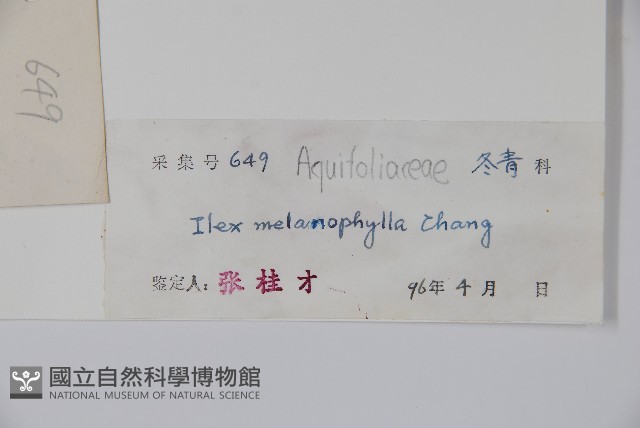 649
采集号 649 Aquifoliaceae 冬青 科
Ilex melanophylla Chang
鉴定人: 张桂才 96年 4 月 日
國立自然科學博物館
NATIONAL MUSEUM OF NATURAL SCIENCE